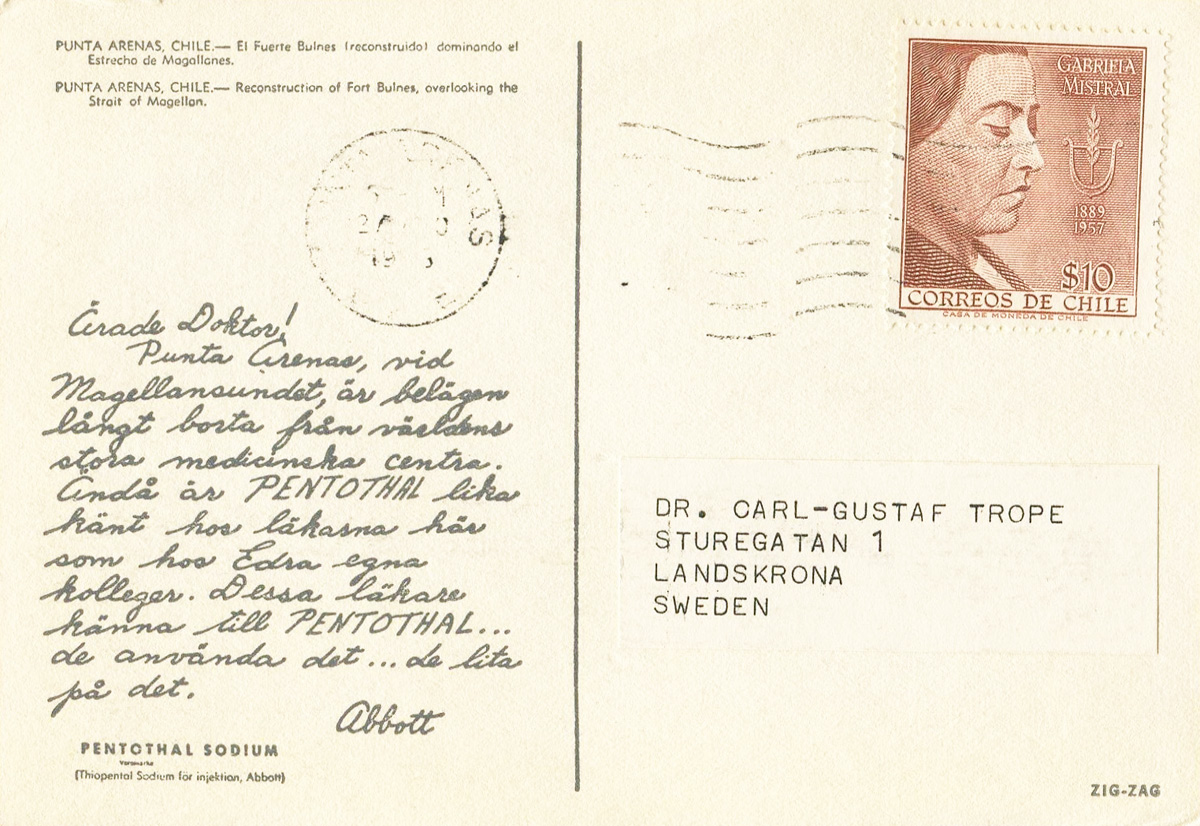 PUNTA ARENAS, CHILE.— El Fuerte Bulnes (reconstruido) dominando el
Estrecho de Magallanes.
PUNTA ARENAS, CHILE.— Reconstruction of Fort Bulnes, overlooking the
Strait of Magellan.
Ärade Doktor!
Punta Arenas, vid
Magellansundet, är belägen
långt borta från världens
stora medicinska centra.
Ändå är PENTOTHAL lika
känt hos läkarna här
som hos Edra egna
kolleger. Dessa läkare
känna till PENTOTHAL...
de använda det... de lita
på det.
Abbott
PENTOTHAL SODIUM
Varumärke
(Thiopental Sodium för injektion, Abbott)
GABRIELA
MISTRAL
1889
1957
$10
CORREOS DE CHILE
CASA DE MONEDA DE CHILE
DR. CARL-GUSTAF TROPE
STUREGATAN 1
LANDSKRONA
SWEDEN
ZIG-ZAG